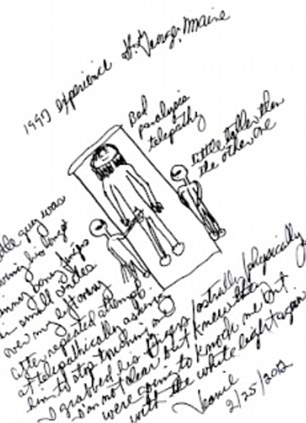 1997 experience St. George, Maine
Bed
paralysis
telepathy
little taller than
the other one
guy was
his long
bony fingers
in small circles
over my left
After repeated attempts
at telepathically asking
him to stop touching me
I grabbed his fingers/astrally/physically
I'm not clear but knew they
were going to knock me out
with the white light again
2/25/2012